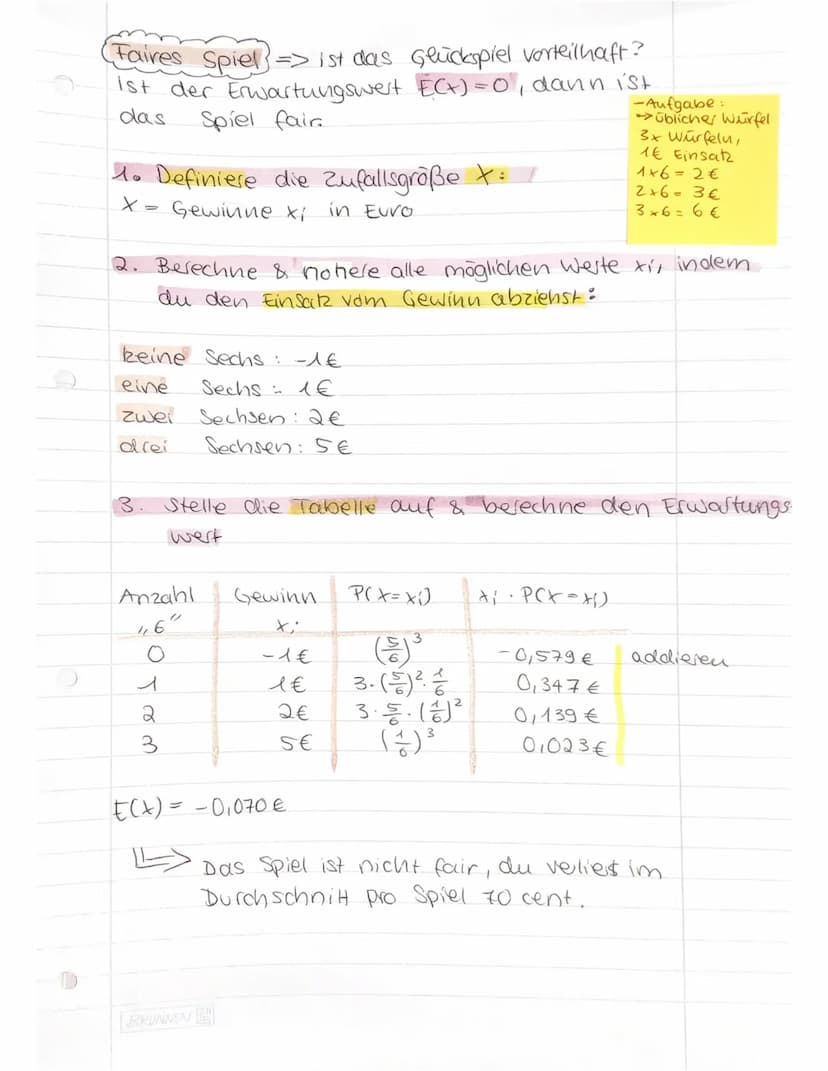 Faires Spiel => ist das Glückspiel vorteilhaft?
ist der Erwartungswert E(x)=0, dann ist
das Spiel fair.
-Aufgabe:
→üblicher Würfel
3x Würfeln,
1€ Einsatz
1x6 = 2€
2x6 = 3€
3x6 = 6€
1. Definiere die Zufallsgröße X:
X = Gewinne xi in Euro
2. Berechne & notiere alle möglichen Werte xi, indem
du den Einsatz vom Gewinn abziehst:
keine Sechs: -1€
eine Sechs: 1€
zwei Sechsen: 2€
drei Sechsen: 5€
3. Stelle die Tabelle auf & berechne den Erwartungs-
wert
Anzahl „6“ Gewinn xi P(X=xi) xi · P(X=xi)
0 -1€ (5/6)³ -0,579€ addieren
1 1€ 3·(5/6)²·1/6 0,347€
2 2€ 3·5/6·(1/6)² 0,139€
3 5€ (1/6)³ 0,023€
E(x) = -0,070€
Das Spiel ist nicht fair, du verlierst im
Durchschnitt pro Spiel 70 cent.
BRUNNEN